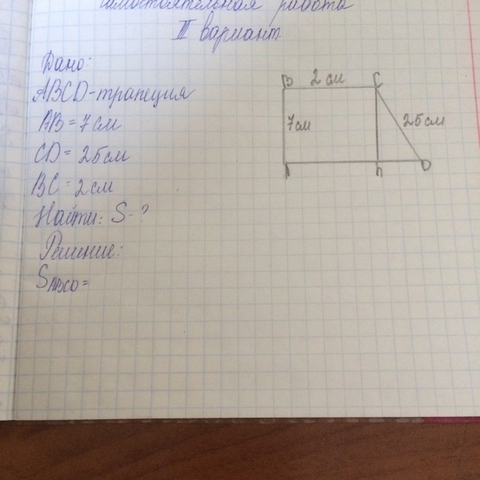 самостоятельная работа
III вариант
Дано:
ABCD-трапеция
AB = 7 см
CD = 25 см
BC = 2 см
Найти: S-?
Решение:
SABCD=
B 2 см C
7 см
25 см
A h D